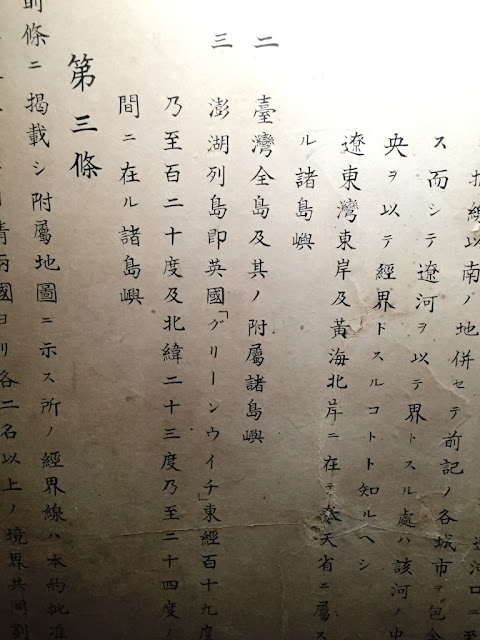 河口ニ
線以南ノ地併セテ前記ノ各城市ヲ包
ス而シテ遼河ヲ以テ界トスル處ハ該河ノ中
央ヲ以テ經界トスルコトト知ルヘシ
遼東灣東岸及黃海北岸ニ在テ奉天省ニ屬ス
ル諸島嶼
二 臺灣全島及其ノ附屬諸島嶼
三 澎湖列島即英國「グリーンウイチ」東經百十九度
乃至百二十度及北緯二十三度乃至二十四度ノ
間ニ在ル諸島嶼
第三條
前條ニ揭載シ附屬地圖ニ示ス所ノ經界線ハ本約批准
清兩國ヨリ各二名以上ノ境界共同劃